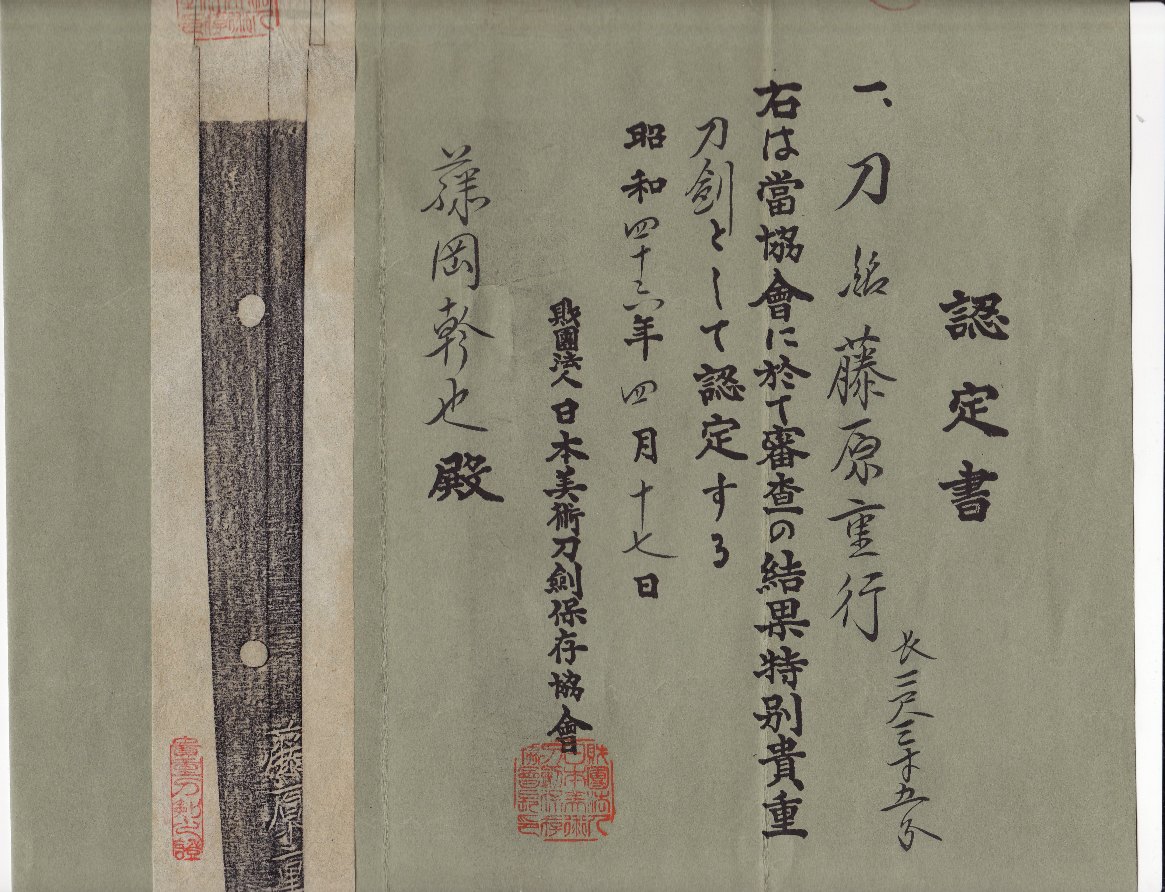 認定書
一、刀 銘 藤原重行
長二尺三寸五分
右は當協會に於て審査の結果特別貴重
刀劍として認定する
昭和四十六年四月十七日
財團法人日本美術刀劍保存協會
財團法人日本美術刀劍保存協會
藤岡幹也殿
藤原重